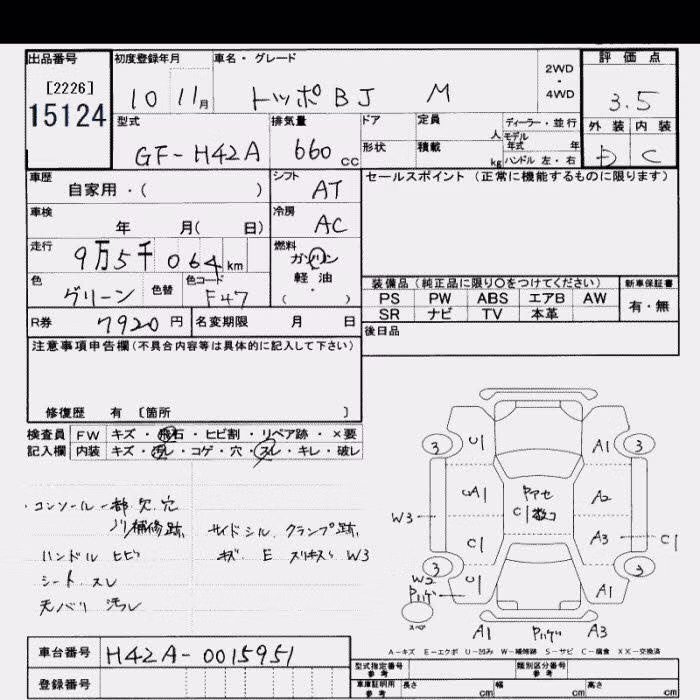 出品番号 初度登録年月 車名・グレード 2WD・4WD 評価点
[2226] 15124 10 11月 トッポBJ M 3.5
型式 排気量 ドア 定員 人 ディーラー・並行 外装 内装
GF-H42A 660cc 形状 積載 kg モデル年式 年 ハンドル 左・右 D C
車歴 シフト セールスポイント(正常に機能するものに限ります)
自家用・( ) AT
車検 冷房
年 月( 日) AC
走行 燃料
9万5千064km ガソリン
色 色替 色コード 軽油 装備品(純正品に限り〇をつけてください) 新車保証書
グリーン F47 ( ) PS PW ABS エアB AW 有・無
SR ナビ TV 本革
R券 7920円 名変期限 月 日 後日品
注意事項申告欄(不具合内容等は具体的に記入して下さい)
修復歴 有 〔箇所 〕
検査員 FW キズ・飛石・ヒビ割・リペア跡・×要
記入欄 内装 キズ・汚レ・コゲ・穴・スレ・キレ・破レ
・コンソール一部欠.穴
ノリ補修跡 サイドシル.クランプ跡
ハンドル ヒビ キズ. E スリキズ W3
シート.スレ
天バリ 汚レ
3 U1 A1 3
UA1 Pアセ A2
C1数コ
W3 C1 A3 C1
3 U1 A1 3
W2
Pハゲ
スペア
A1 Pハゲ A3
A-キズ E-エクボ U-凹み W-補修跡 S-サビ C-腐食 XX-交換済
車台番号 H42A-0015951
型式指定番号 参考 類別区分番号 参考
登録番号 車庫証明用 参考 長さ cm 幅 cm 高さ cm